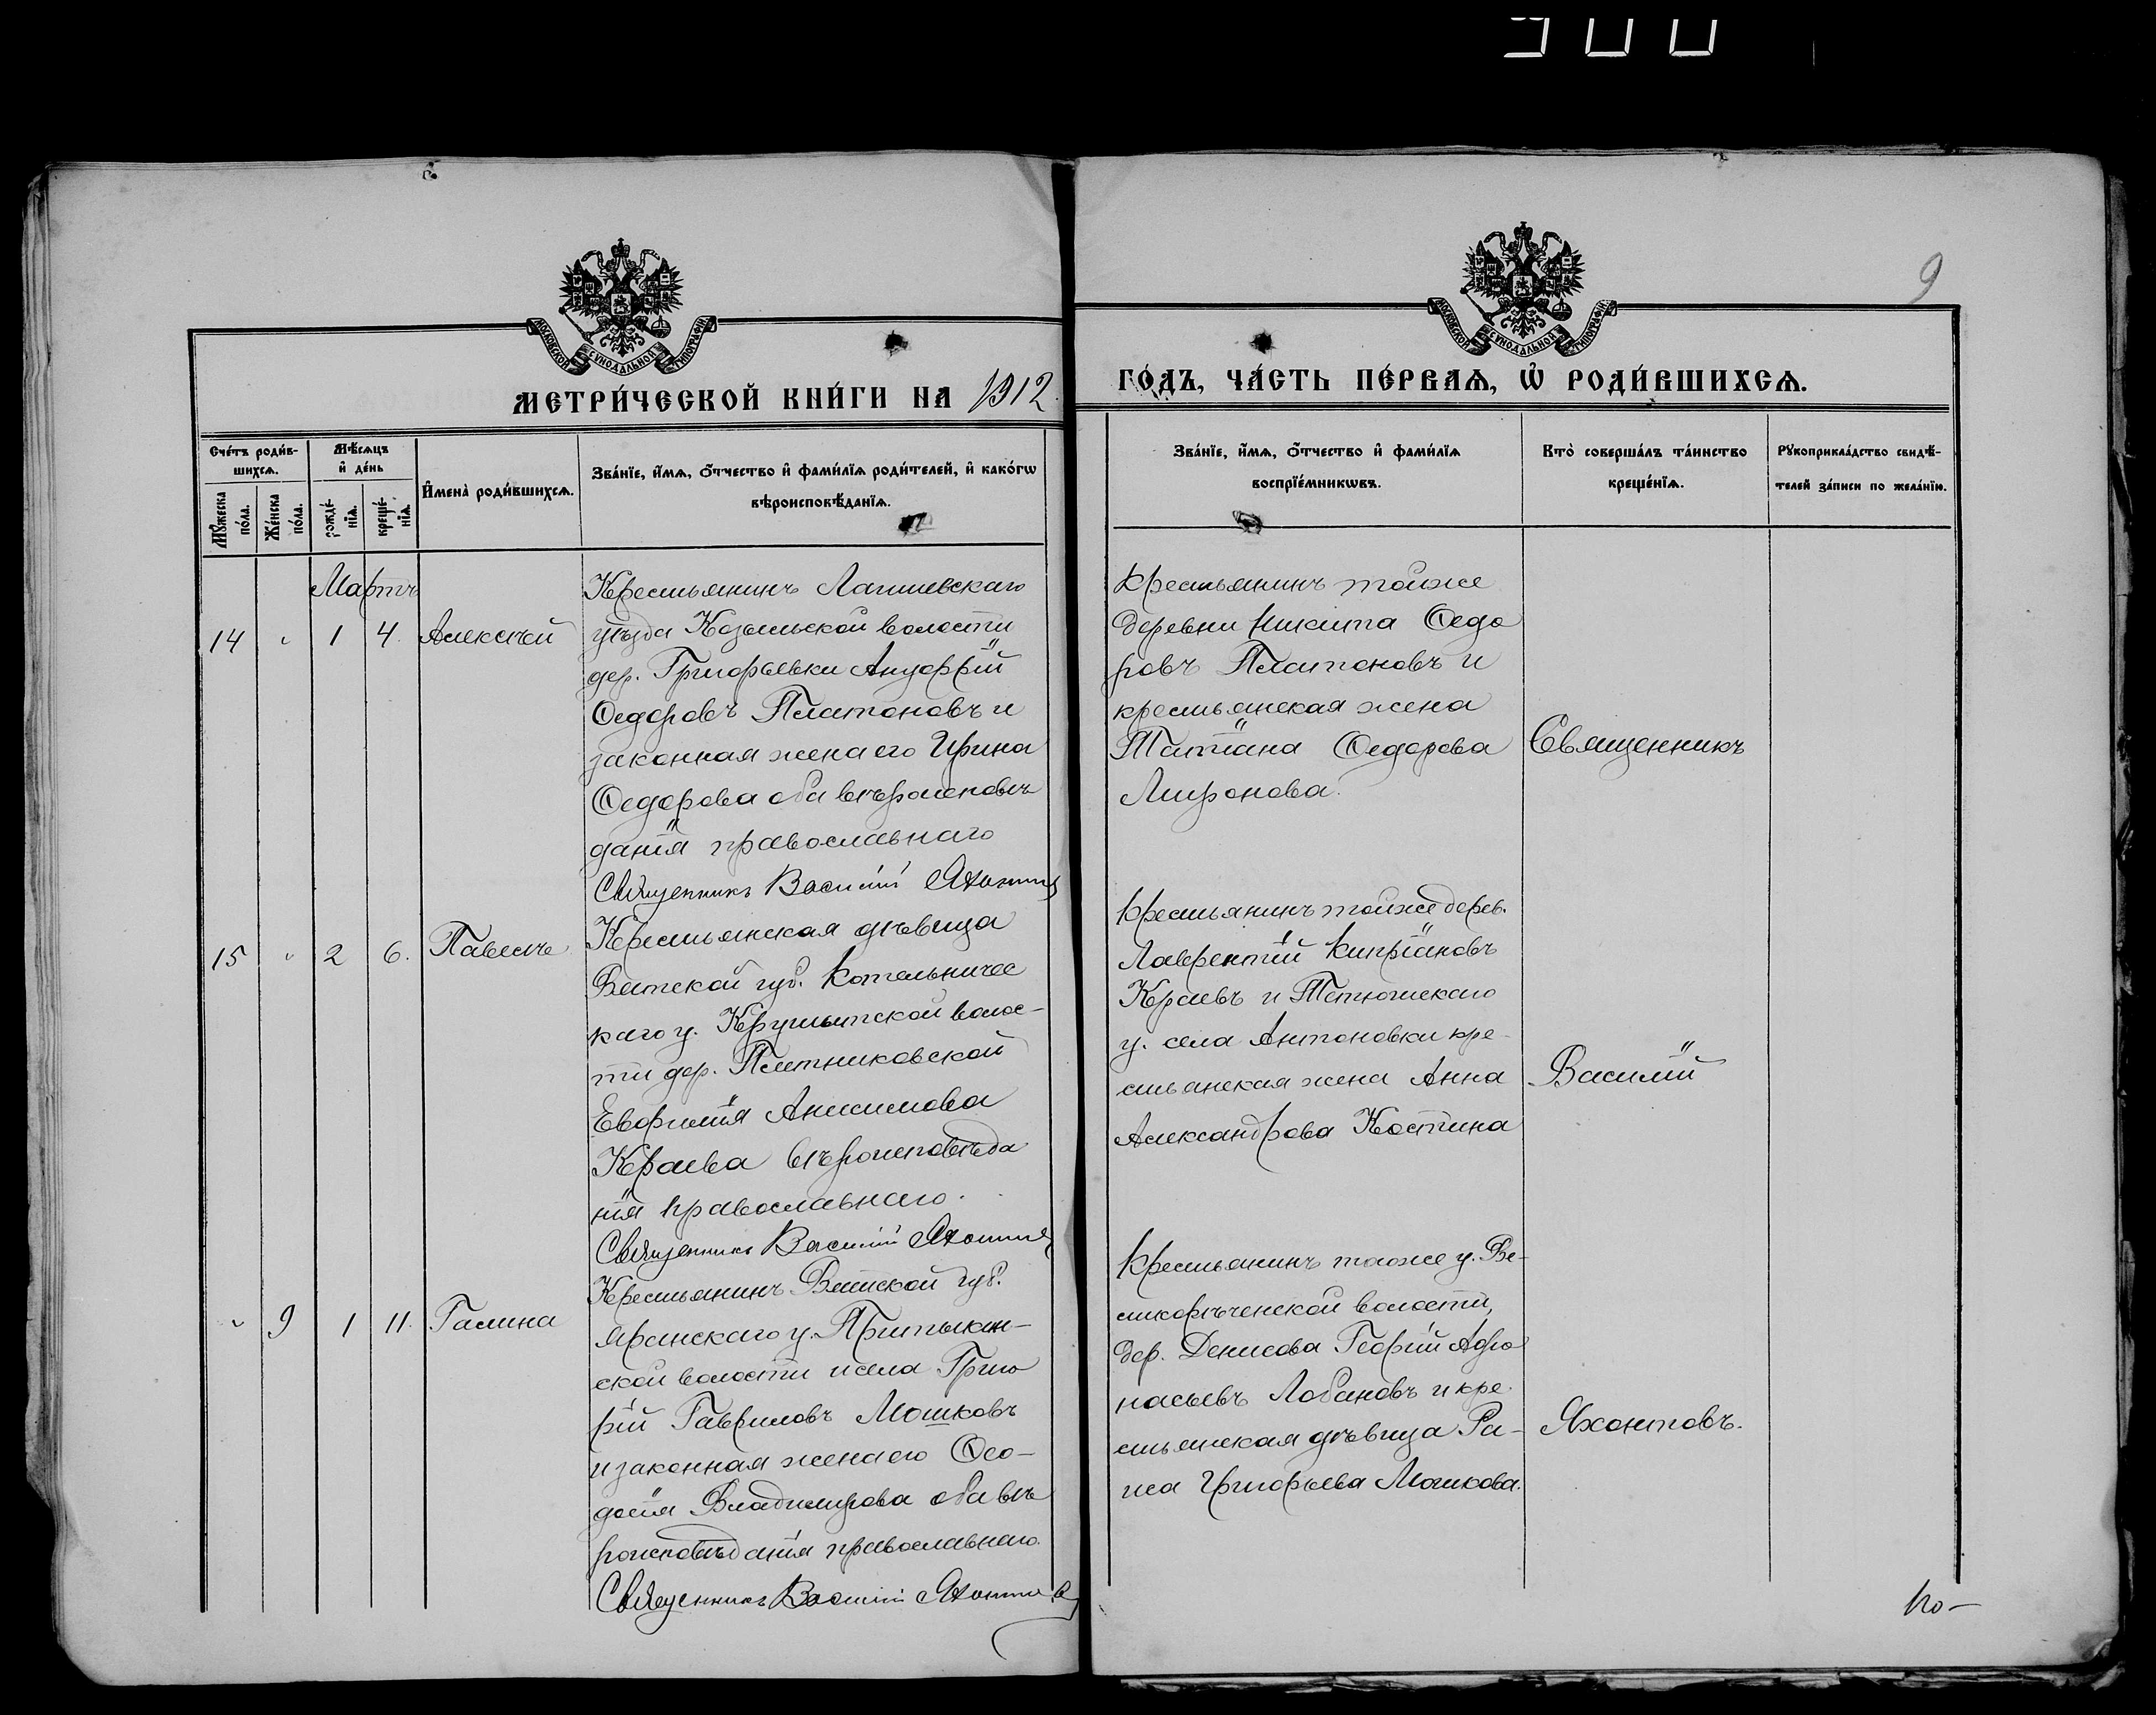 900
9
МОСКОВСКОЙ СѴНОДАЛЬНОЙ ТИПОГРАФІИ
МОСКОВСКОЙ СѴНОДАЛЬНОЙ ТИПОГРАФІИ
МЕТРИ́ЧЕСКОЙ КНИ́ГИ НА 1912
ГО́ДЪ, ЧА́СТЬ ПЕ́РВАѦ, Ѡ҆ РОДИ́ВШИХСѦ.
Сче́тъ роди́в-
шихсѧ.
Мꙋ́жеска по́ла.
Же́нска по́ла.
Мѣ́сѧцъ
и҆ де́нь
рожде́-
нїѧ.
креще́-
нїѧ.
И҆мена̀ роди́вшихсѧ.
Зва́нїе, и҆́мѧ, ѻ҆́тчество и҆ фами́лїѧ роди́телей, и҆ како́гѡ
вѣроисповѣ́данїѧ.
Зва́нїе, и҆́мѧ, ѻ҆́тчество и҆ фами́лїѧ
воспрїе́мникѡвъ.
Кто̀ соверша́лъ та́инство
креще́нїѧ.
Рꙋкоприкла́дство свидѣ́-
телей за́писи по жела́нїю.
Мартъ
14 " 1 4. Алексѣй
Крестьянинъ Лаишевскаго
уѣзда Козыльской волости
дер. Григорьевки Андрей
Ѳедоровъ Платоновъ и
законная жена его Ирина
Ѳедорова оба вѣроисповѣ
данія православнаго
Священникъ Василій Яхонтов
Крестьянинъ тойже
деревни Никита Ѳедо
ровъ Платоновъ и
крестьянская жена
Татіана Ѳедорова
Миронова.
Священникъ
15 " 2 6. Павелъ
Крестьянская дѣвица
Вятской губ. Котельничес
каго у.
волос-
ти дер.
Евфимія Анисимова
Краева вѣроисповѣда
нія православнаго.
Священникъ Василій Яхонтов
Крестьянинъ тойже дерев.
Лаврентій Кипріановъ
Краевъ и Тетюшскаго
у. села Антоновки кре-
стьянская жена Анна
Александрова Костина
Василій
" 9 1 11. Галина
Крестьянинъ Вятской губ.
Яранскаго у. Притыкин-
ской волости и села Григо
рій Гавриловъ Мошковъ
и законная жена его Ѳео-
досія Владимирова оба вѣ
роисповѣданія православнаго.
Священникъ Василій Яхонтов
Крестьянинъ тогоже у. Ве-
ликорѣченской волости,
дер. Денисова Георгій Афа
насьевъ Лобановъ и кре-
стьянская дѣвица Ра-
иса Григорьева Мошкова.
Яхонтовъ.
По-